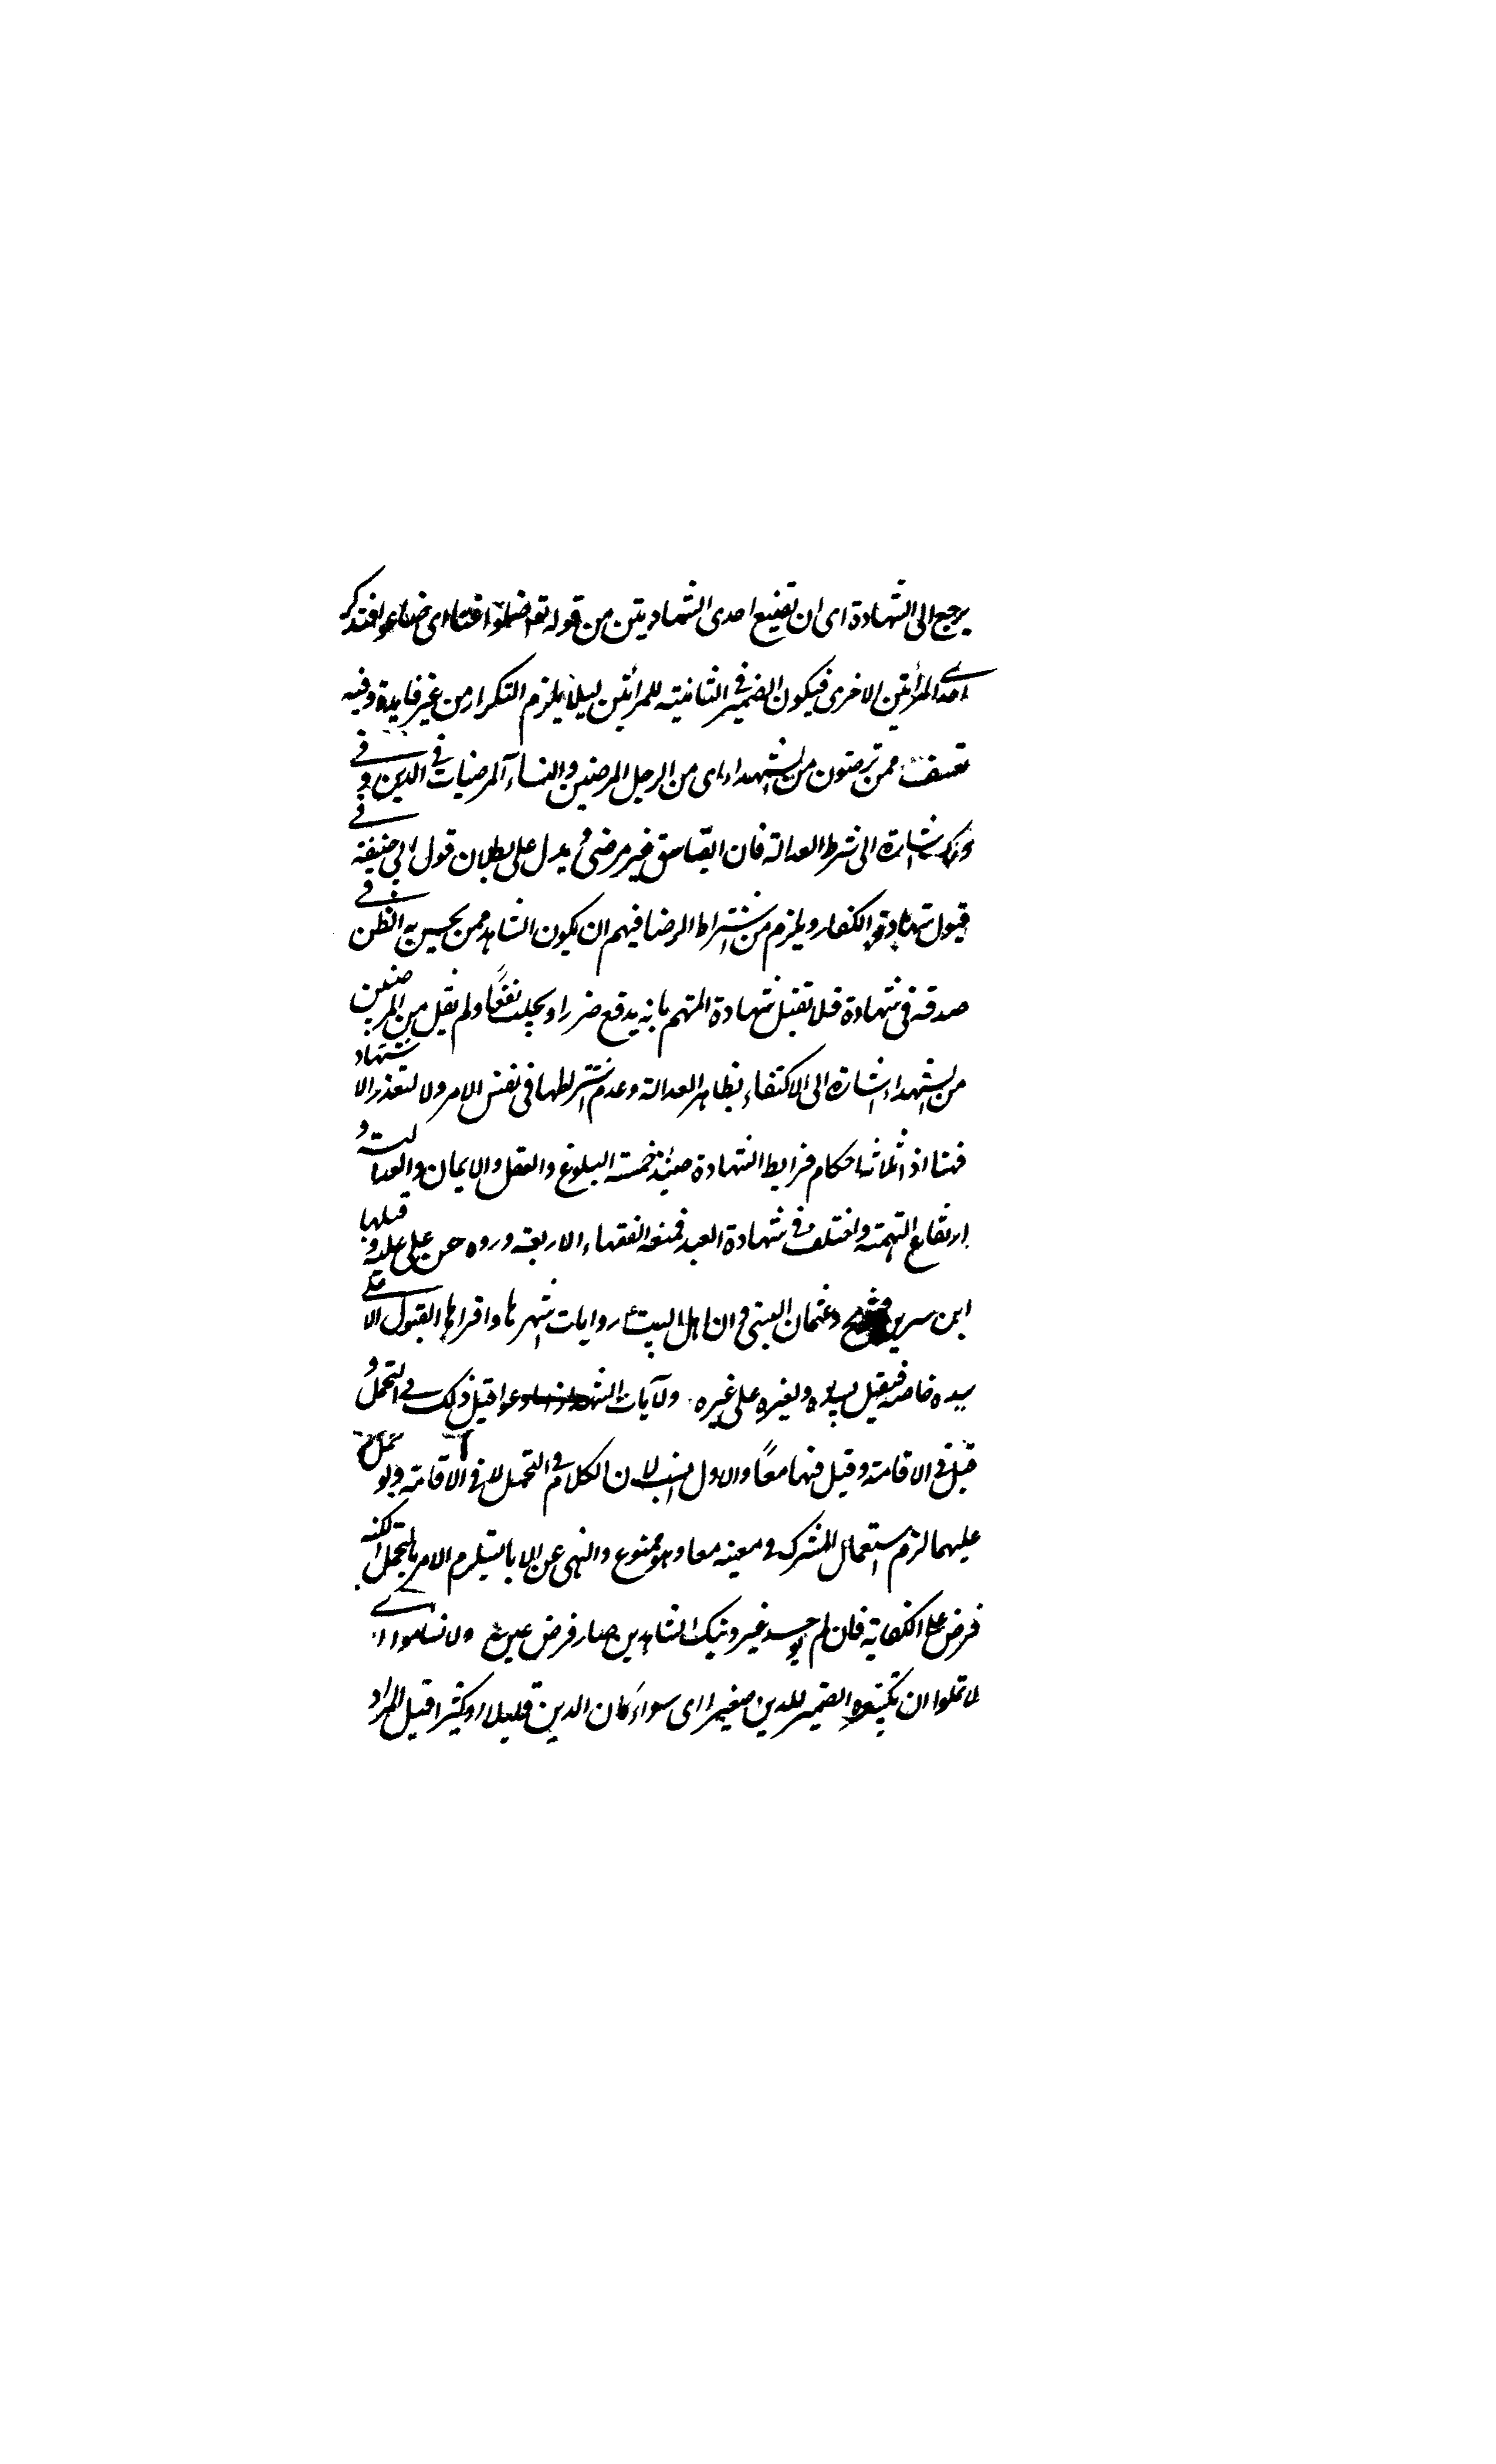 يرجع الى الشهادة اى ان تضيع احدى الشهادتين من قوله تعا ضلوا عنا اى ضاعوا فتذكر
احدى المرأتين الاخرى فيكون الضمير فى الثانيته للمرأتين ليلا يلزم التكرار من غير فايدة وفيه
تعسف ممن ترضون من الشهداء اى من الرجل المرضيين والنساء المرضيات فى الدين و فى
ذلك اشارة الى شرط العدالة فان الفاسق غير مرضى و يدل على بطلان قول ابى حنيفة فى
قبول شهادة الكفار ويلزم من اشتراط الرضا فيهم ان يكون الشاهد ممن يحسن به الظن فى
صدقه فى شهادة فلا تقبل شهادة المتهم بانه يدفع ضررا او يجلب نفعًا ولم يقل من المرضيين
من الشهداء اشارة الى الاكتفاء بظاهر العدالة وعدم اشتراطها فى نفس الامر ولا لتعذر الاشهاد
فهنا اذا ثلاثه احكام شرايط الشهادة حينئذ خمسته البلوغ والعقل والايمان والعدالته و
ارتفاع التهمته واختلف فى شهادة العبد فمنعه الفقهاء الاربعة و روه عن على عليه و قبلها
ابن سيرين وشريح وعثمان البتى و ان اهل البيت ع روايات اشهرها واقراها القبول الا على
سيده خاصه فيقبل لسيده ولغيره على غيره ولا ياب الشهداء اذا ما دعوا قيل ذلك فى التحمل و
قيل فى الاقامته وقيل فيهما معًا والاول انسب لان الكلام فى التحمل لا فى الاقامته ولو حمل
عليهما لزم استعمال المشترك فى معنيه معا وهو ممنوع والنهى عن الابا يستلزم الامر بالتحمل لكنه
فرض على الكفاية فان لم يوجد غير ذينك الشاهدين صار فرض عين ولا تساموا اى
لا تملوا ان تكتبوه الضمير للدين صغيرا اى سواءً كان الدين قليلا او كثيرا قيل المراد